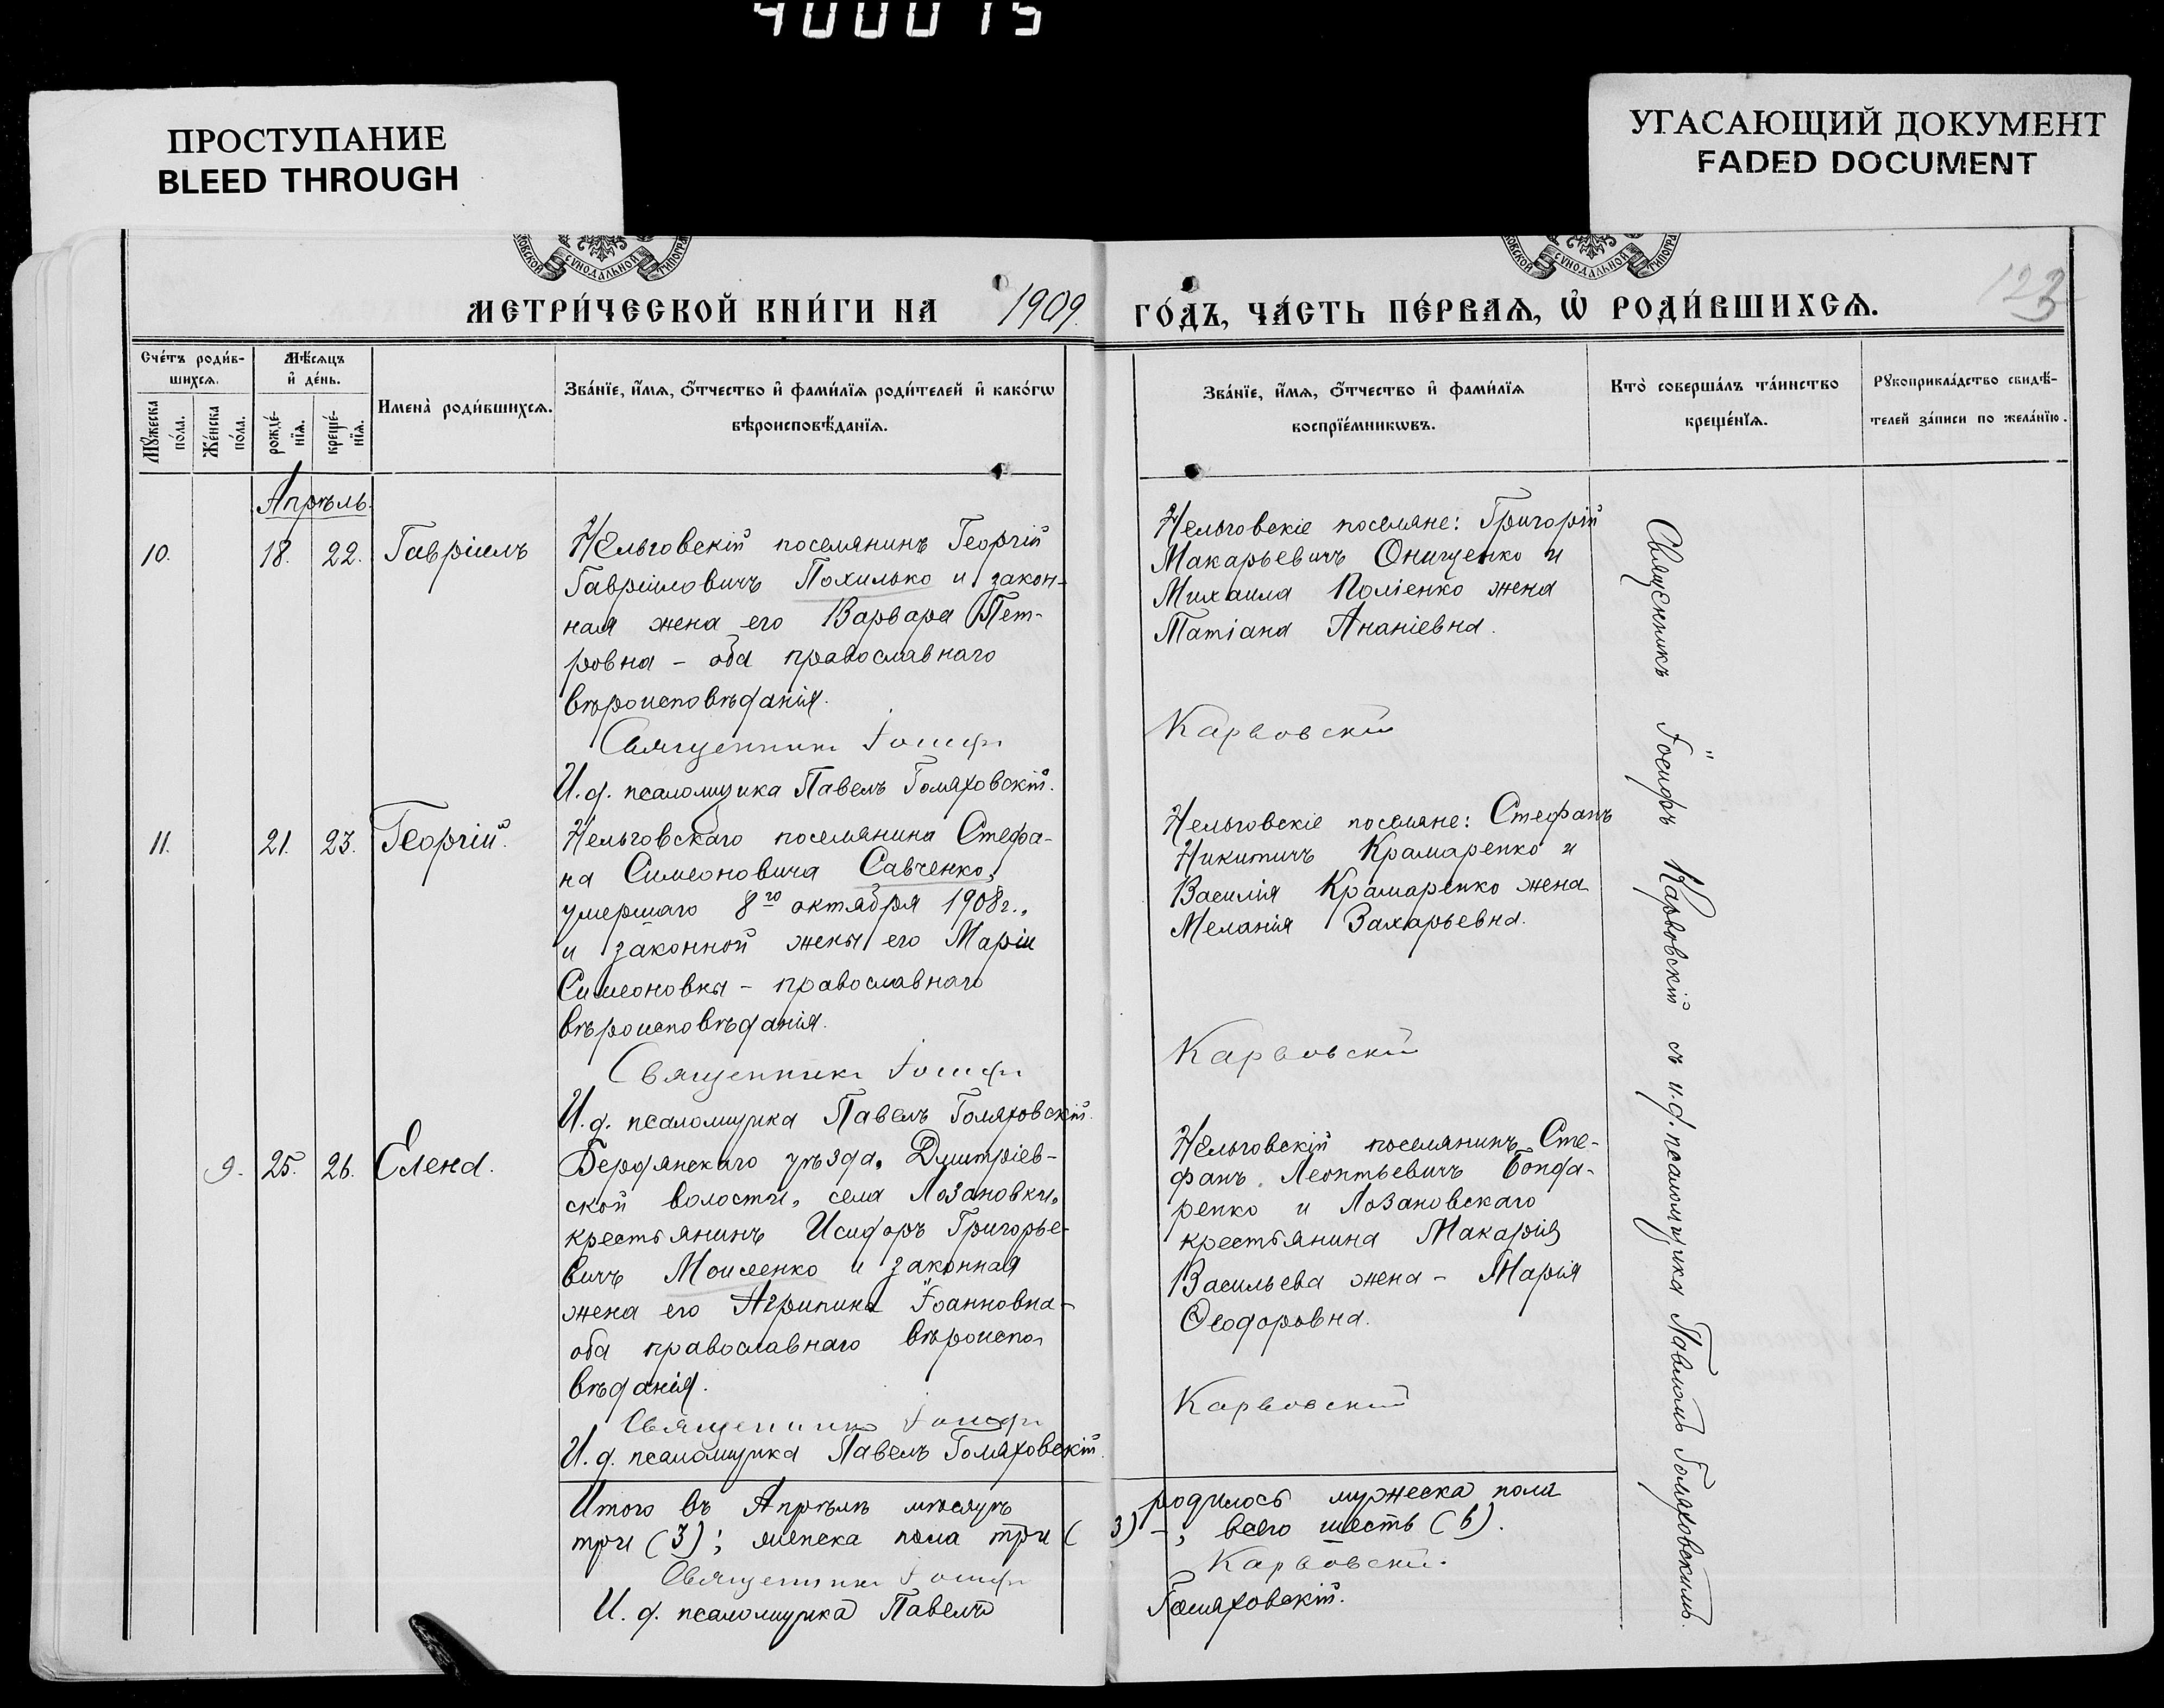 400015
ПРОСТУПАНИЕ
BLEED THROUGH
УГАСАЮЩИЙ ДОКУМЕНТ
FADED DOCUMENT
СѴНОДАЛЬНОЙ
СѴНОДАЛЬНОЙ
МЕТРИ́ЧЕСКОЙ КНИ́ГИ НА 1909. ГО́ДЪ, ЧА́СТЬ ПЕ́РВАѦ, Ѡ҆ РОДИ́ВШИХСѦ.
123
Сче́тъ роди́в-
шихсѧ.
Мꙋ́жеска по́ла.
Же́нска по́ла.
Мѣ́сѧцъ
и҆ де́нь.
рожде́-
нїѧ.
креще́-
нїѧ.
Имена̀ роди́вшихсѧ.
Зва́нїе, и҆́мѧ, ѻ҆́тчество и҆ фами́лїѧ роди́телей и҆ како́гѡ
вѣроисповѣ́данїѧ.
Зва́нїе, и҆́мѧ, ѻ҆́тчество и҆ фами́лїѧ
воспрїе́мникѡвъ.
Кто̀ соверша́лъ та́инство
креще́нїѧ.
Рꙋкоприкла́дство свидѣ́-
телей за́писи по жела́нїю.
Апрѣль.
10. 18. 22. Гавріилъ
Нельговскій поселянинъ Георгій
Гавріиловичъ Похилько и закон-
ная жена его Варвара Пет-
ровна - оба православнаго
вѣроисповѣданія.
Священникъ Іосифъ
И. д. псаломщика Павелъ Голяховскій.
Нельговскіе поселяне: Григорій
Макарьевичъ Онищенко и
Михаила Поліенко жена
Татіана Ананіевна.
Карвовскій
11. 21. 23. Георгій.
Нельговскаго поселянина Стефа-
на Симеоновича Савченко,
умершаго 8го октября 1908 г.,
и законной жены его Маріи
Симеоновны - православнаго
вѣроисповѣданія.
Священникъ Іосифъ
И. д. псаломщика Павелъ Голяховскій.
Нельговскіе поселяне: Стефанъ
Никитичъ Крамаренко и
Василія Крамаренко жена
Меланія Захарьевна.
Карвовскій
9. 25. 26. Елена.
Бердянскаго уѣзда, Димитріев-
ской волости, села Лозановки,
крестьянинъ Исидоръ Григорье-
вичъ Моисеенко и законная
жена его Агрипина Іоанновна -
оба православнаго вѣроиспо-
вѣданія.
Священникъ Іосифъ
И. д. псаломщика Павелъ Голяховскій.
Нельговскій поселянинъ Сте-
фанъ Леонтьевичъ Бонда-
ренко и Лозановскаго
крестьянина Макарія
Васильева жена - Марія
Ѳеодоровна.
Карвовскій
Священникъ Іосифъ Карвовскій съ и. д. псаломщика Павломъ Голяховскимъ.
Итого въ Апрѣлѣ мѣсяцѣ родилось мужеска пола
три (3); женска пола три (3) -, всего шесть (6).
Священникъ Іосифъ Карвовскій.
И. д. псаломщика Павелъ Голяховскій.